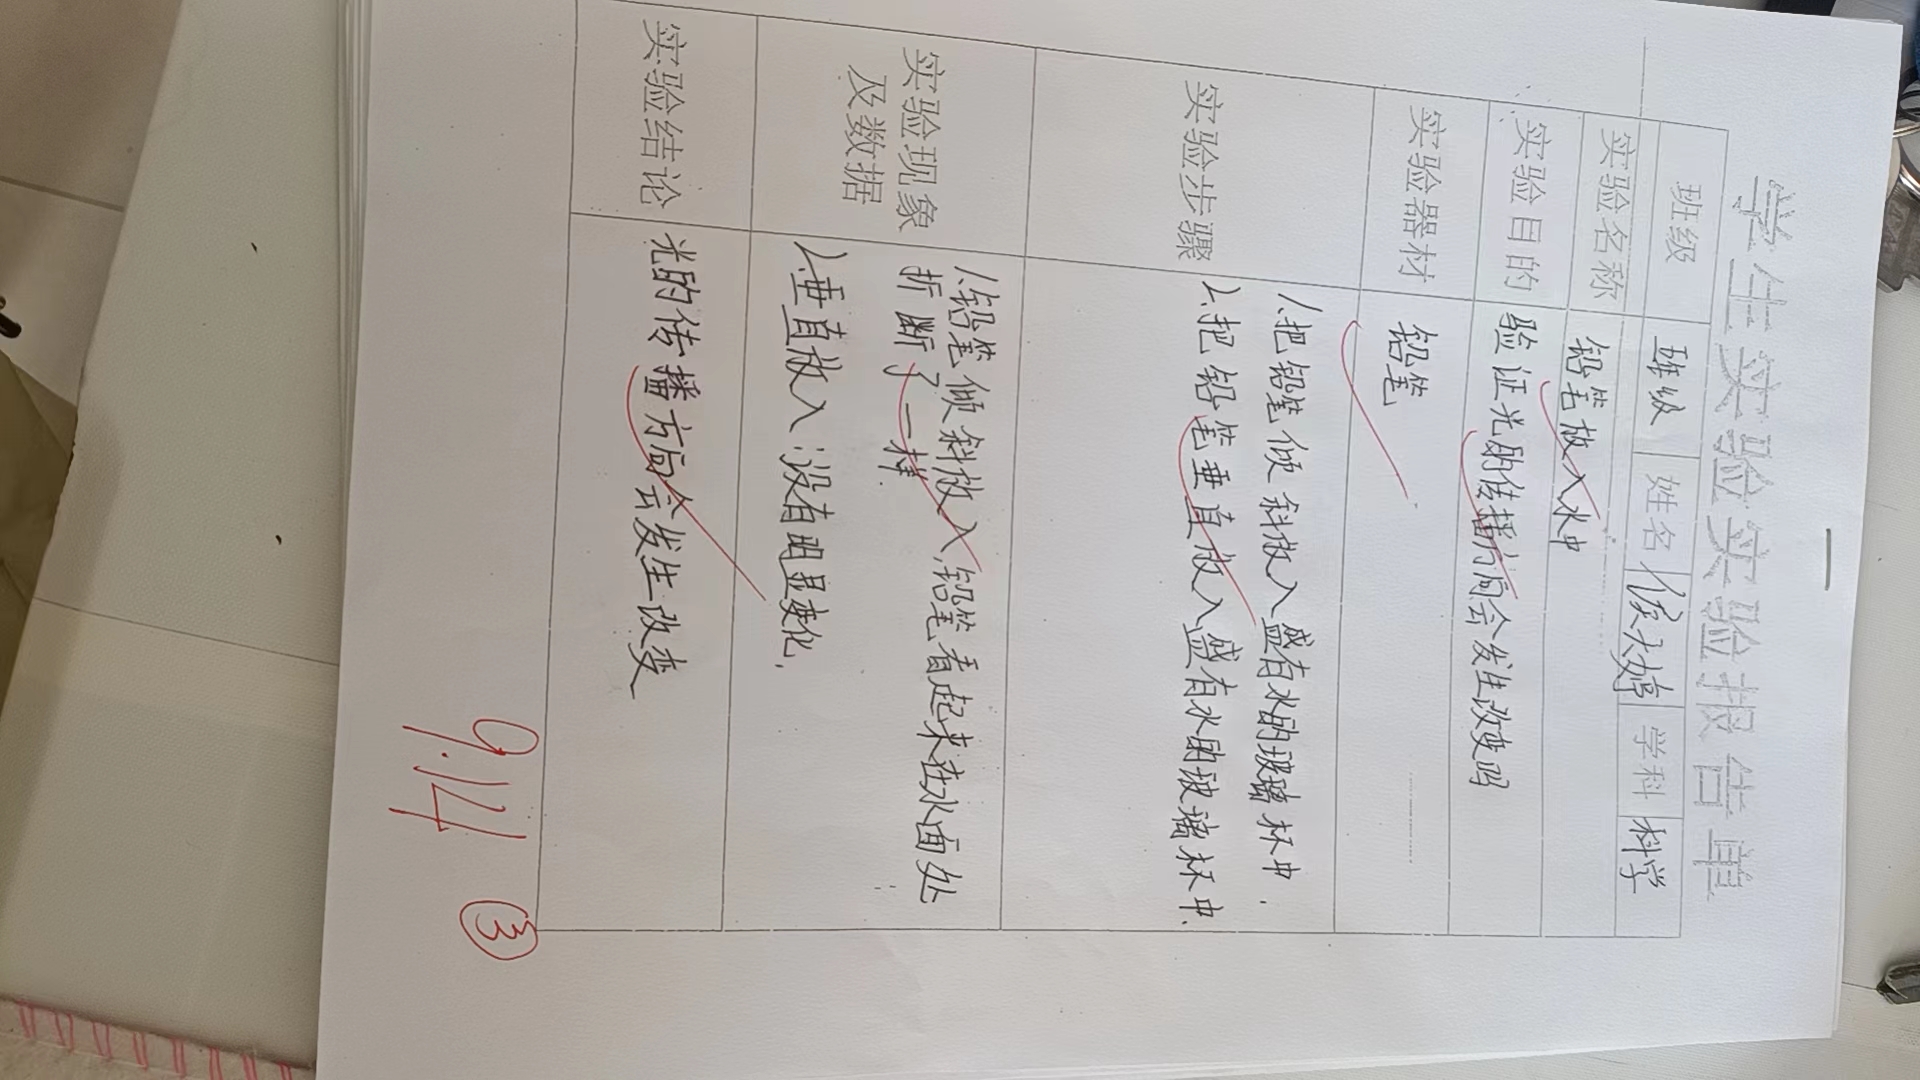 学生实验实验报告单
班级 班级 姓名 侯天婷 学科 科学
实验名称 铅笔放入水中
实验目的 验证光的传播方向会发生改变吗
实验器材 铅笔
实验步骤 1.把铅笔倾斜放入盛有水的玻璃杯中.
2.把铅笔垂直放入盛有水的玻璃杯中.
实验现象及数据 1.铅笔倾斜放入,铅笔看起来在水面处
折断了一样.
2.垂直放入:没有明显变化.
实验结论 光的传播方向会发生改变
9.14 ③